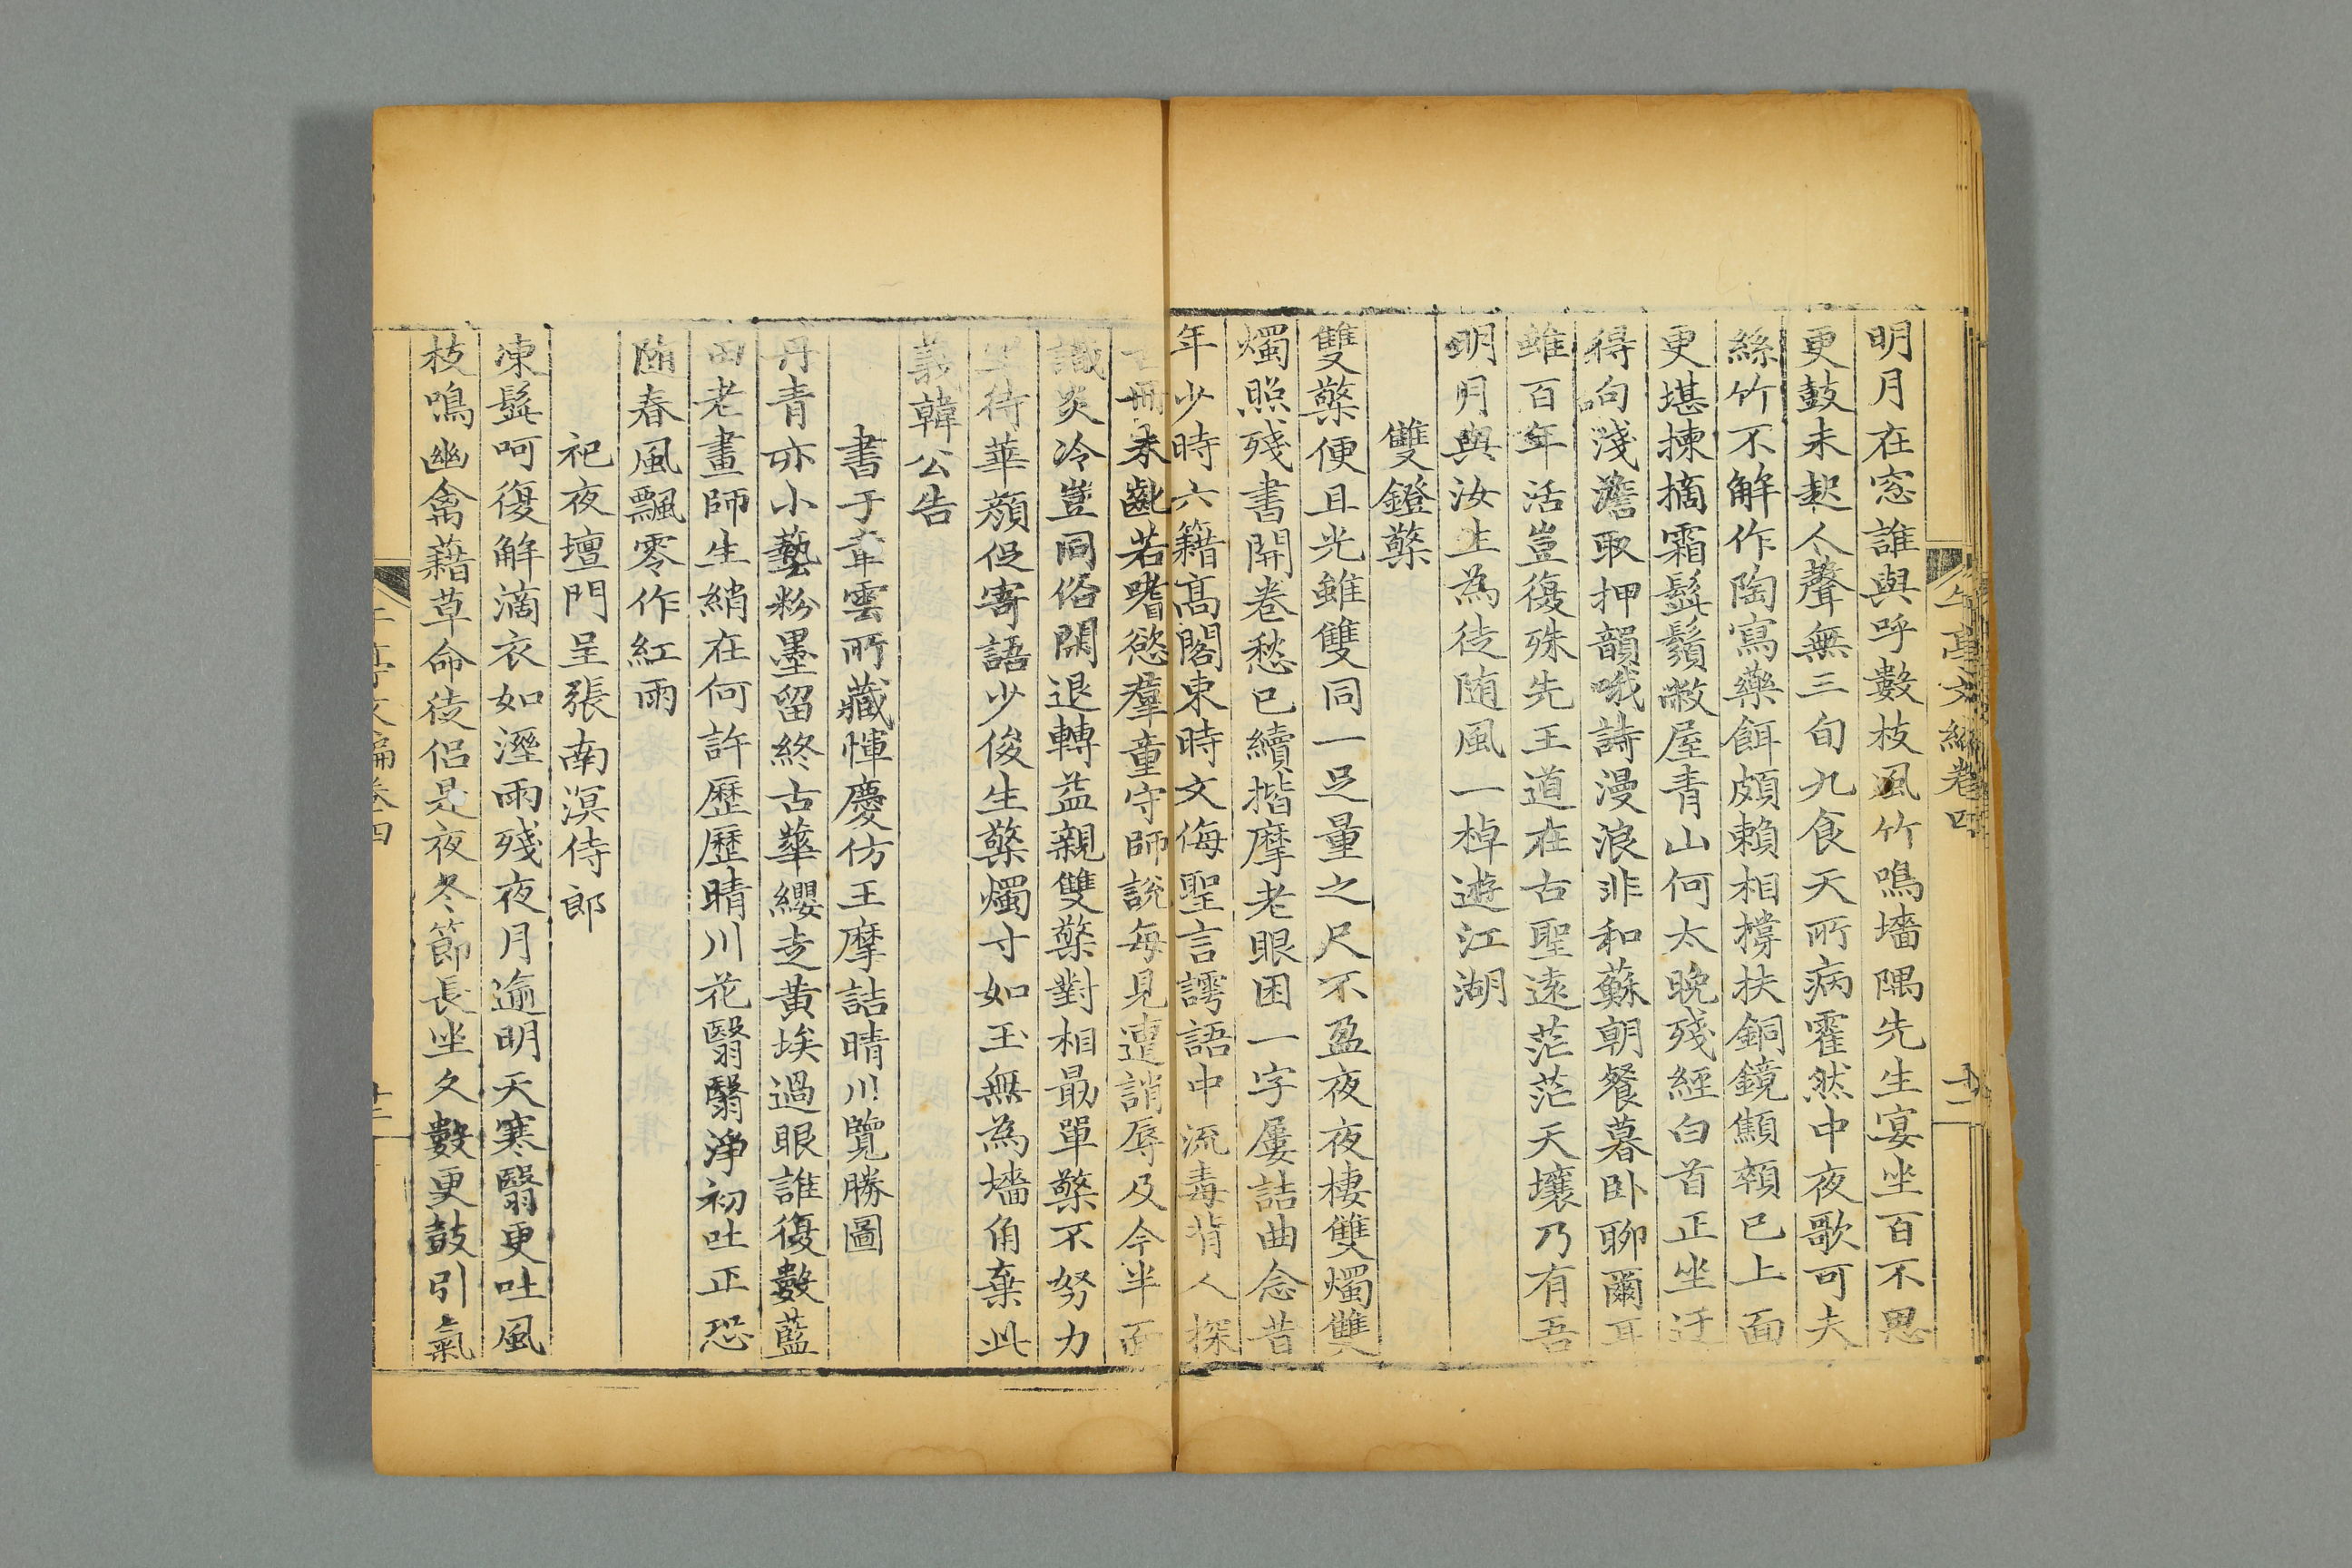 午亭文編卷四
十二
明月在窓誰與呼數枝風竹鳴墻隅先生宴坐百不思
更鼓未起人聲無三旬九食天所病霍然中夜歌可夫
絲竹不解作陶寫藥餌頗賴相撐扶銅鏡顦顇已上面
更堪揀摘霜髭鬚敝屋青山何太晚殘經白首正坐迂
得句淺澹取押韻哦詩漫浪非和蘇朝餐暮卧聊爾耳
雖百年活豈復殊先王道在古聖遠茫茫天壤乃有吾
明月與汝生為徒随風一棹遊江湖
雙鐙檠
雙檠便且光雖雙同一足量之尺不盈夜夜棲雙燭雙
燭照殘書開卷愁已續揩摩老眼困一字屢詰曲念昔
年少時六籍高閣束時文侮聖言謣語中流毒背人探
冊未齔若嗜慾羣童守師說每見遭誚辱及今半面
識炎冷豈同俗閑退轉益親雙檠對相勗單檠不努力
坐待華顏促寄語少俊生檠燭寸如玉無為墻角棄此
義韓公告
書于韋雲所藏惲慶仿王摩詰晴川覽勝圖
丹青亦小藝粉墨留終古華纓走黄埃過眼誰復數藍
田老畫師生綃在何許歷歷晴川花翳翳淨初吐正恐
随春風飄零作紅雨
祀夜壇門呈張南溟侍郎
凍髭呵復解滴衣如溼雨殘夜月逾明天寒翳更吐風
枝鳴幽禽藉草命徒侶是夜冬節長坐久數更鼓引氣
午亭文編卷四
十三